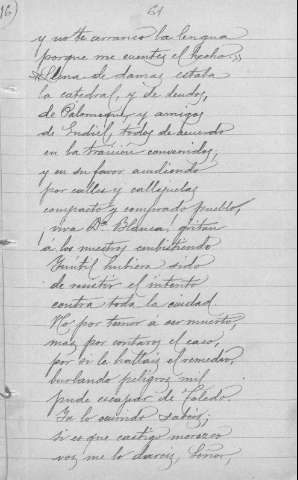 16) 61
y no te arranco la lengua
porque me cuentes el hecho.»
«Llena de damas estaba
la catedral, y de deudos,
de Palomeque y amigos
de Gudiel, todos de acuerdo
en la traición convenidos,
y en su favor acudiendo
por calles y callejuelas
compacto y comprado pueblo,
¡viva Dª Blanca, gritan
á los nuestros embistiendo
Inútil hubiera sido
de resistir el intento
contra toda la ciudad
No por temor á ser muerto,
mas por contaros el caso,
por si le hallais el remedio,
burlando peligros mil
pude escapar de Toledo.
Ya lo ocurrido sabeis;
si es que castigo merezco
vos me lo dareis, Señor,